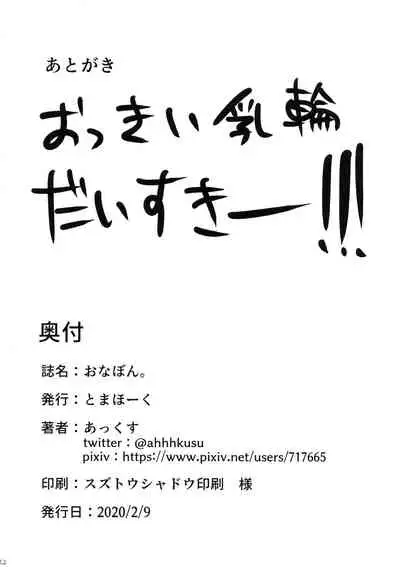 あとがき
おっきい乳輪
だいすきー!!!
奥付
誌名：おなぼん。
発行：とまほーく
著者：あっくす
twitter：@ahhhkusu
pixiv：https://www.pixiv.net/users/717665
印刷：スズトウシャドウ印刷　様
発行日：2020/2/9